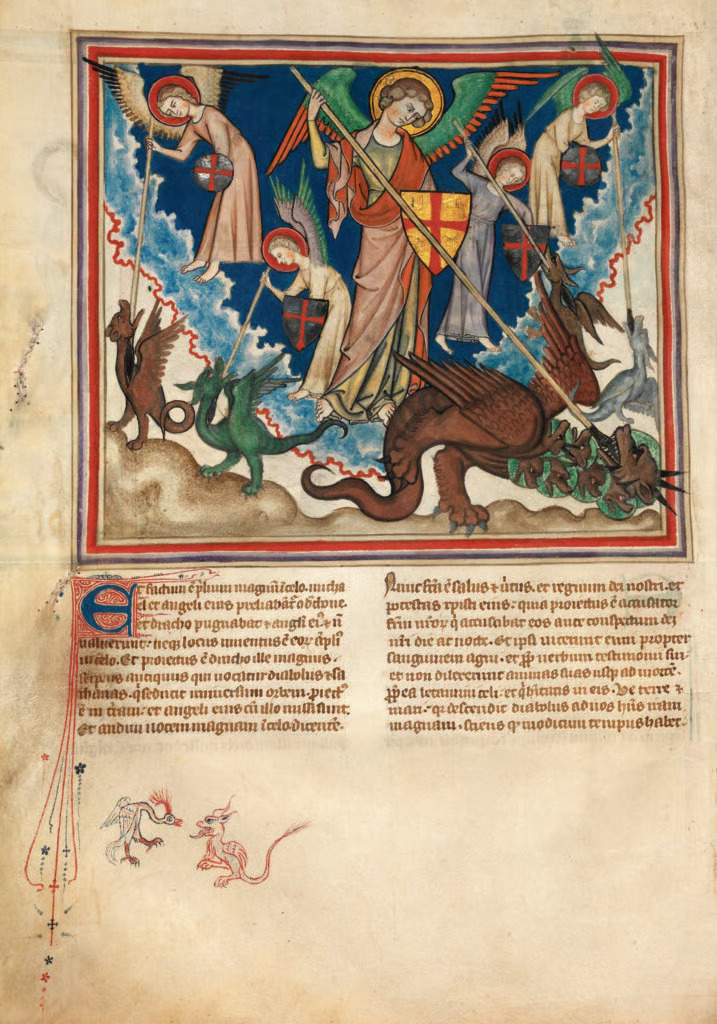 Et factum ē p̄lium magnū ī celo. micha
el et angeli eius preliabāt᷑ cū dchone.
et dracho pugnabat ⁊ angli eiꝰ ⁊ ñ
ualuerunt. neqꝫ locus inuentus ē eoꝝ ap̄liꝰ
ī celo. Et proiectus ē dracho ille magnus.
serpens antiquus qui uocatur diabolus ⁊ sa
thanas. q̇ seducit uniuersum orbem. ꝓiectꝰ
ē in terrā. et angeli eius cū illo missi sunt.
Et audiui uocem magnam ī celo dicentē.
Nunc fc̄a ē salus ⁊ uirtus. et regnum dei nostri. et
potestas xpisti eius. quia proiectus ē accusator
fr̄m nr̄oꝝ q̇ accusabat eos ante conspectum dei
nr̄i die ac nocte. Et ipsi uicerunt eum propter
sanguinem agni. et ꝓp̄ uerbum testimonii sui.
et non dilexerunt animas suas usqꝫ ad mortē.
ꝓp̄ ea letamini celi. et q̇ hitatis in eis. Ve terre ⁊
mari. qꝛ descendit diabolus ad uos hn̄s iram
magnam. sciens qꝫ modicum tempus habet.